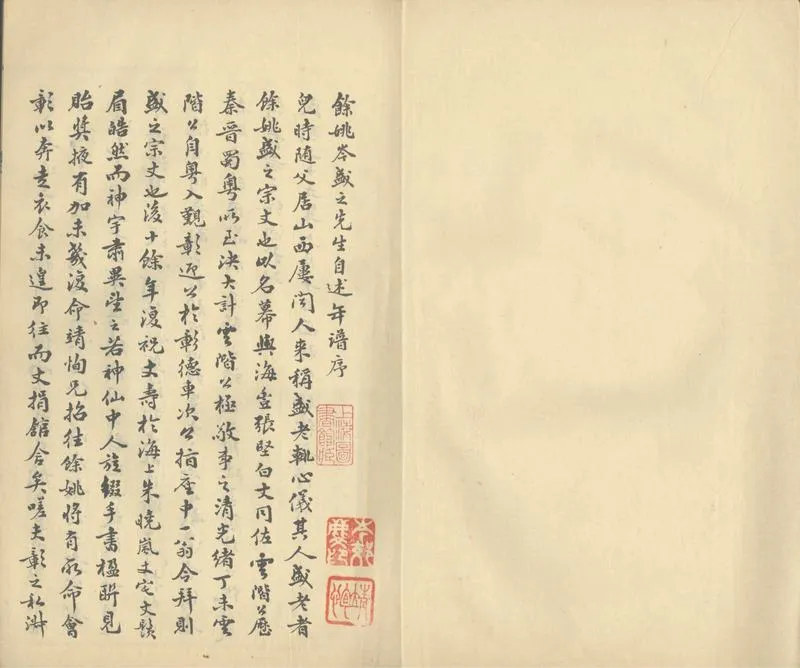 餘姚岑盛之先生自述年譜序
兒時隨父居山西屢聞人來稱盛老輒心儀其人盛老者
餘姚盛之宗丈也以名幕與海鹽張堅白丈同佐雲階公歷
秦晉蜀粵所至決大計雲階公極敬事之清光緒丁未雲
階公自粵入覲彰迎公於彰德車次公指座中一翁令拜則
盛之宗丈也後十餘年復祝丈壽於海上朱曉嵐丈宅丈鬚
眉皓然而神宇肅異望之若神仙中人旋綴手書楹聯見
貽獎掖有加未幾復命靖恂兄招往餘姚將有所命會
彰以奔走衣食未遑即往而丈捐館舍矣嗟夫彰之私淑
上海圖
書館藏